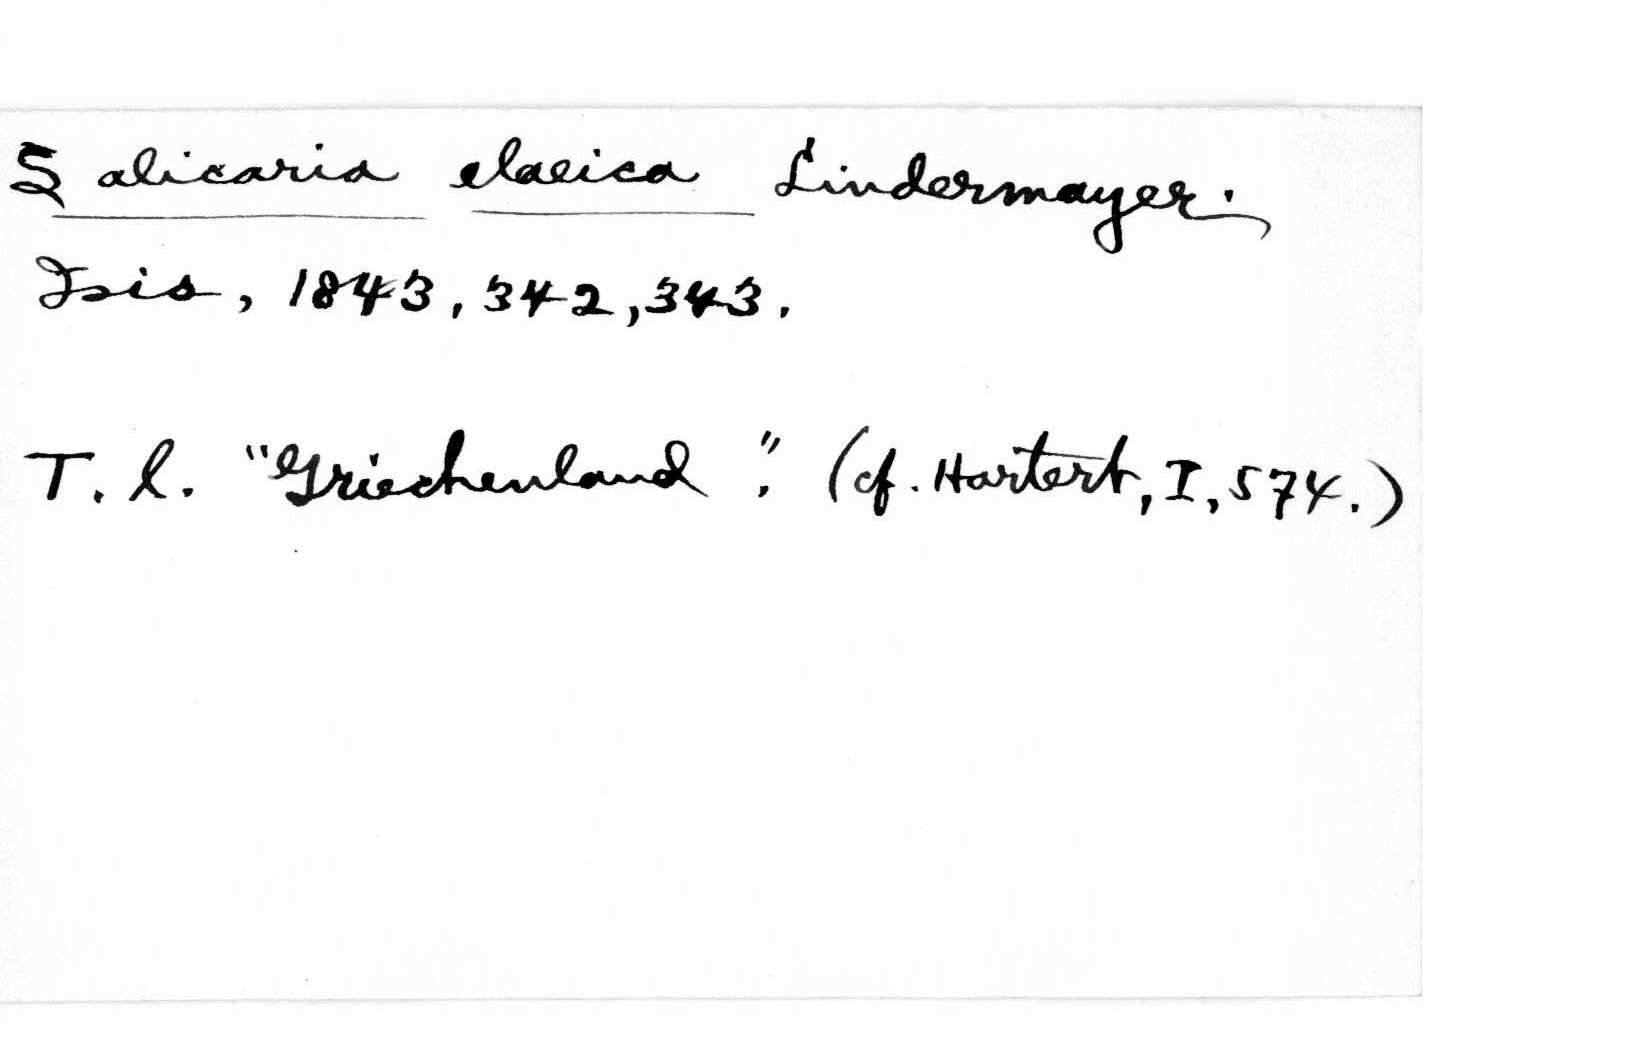 Salicaria elaeica Lindermayer.
Isis, 1843, 342, 343.
T. l. "Griechenland". (cf. Hartert, I, 574.)